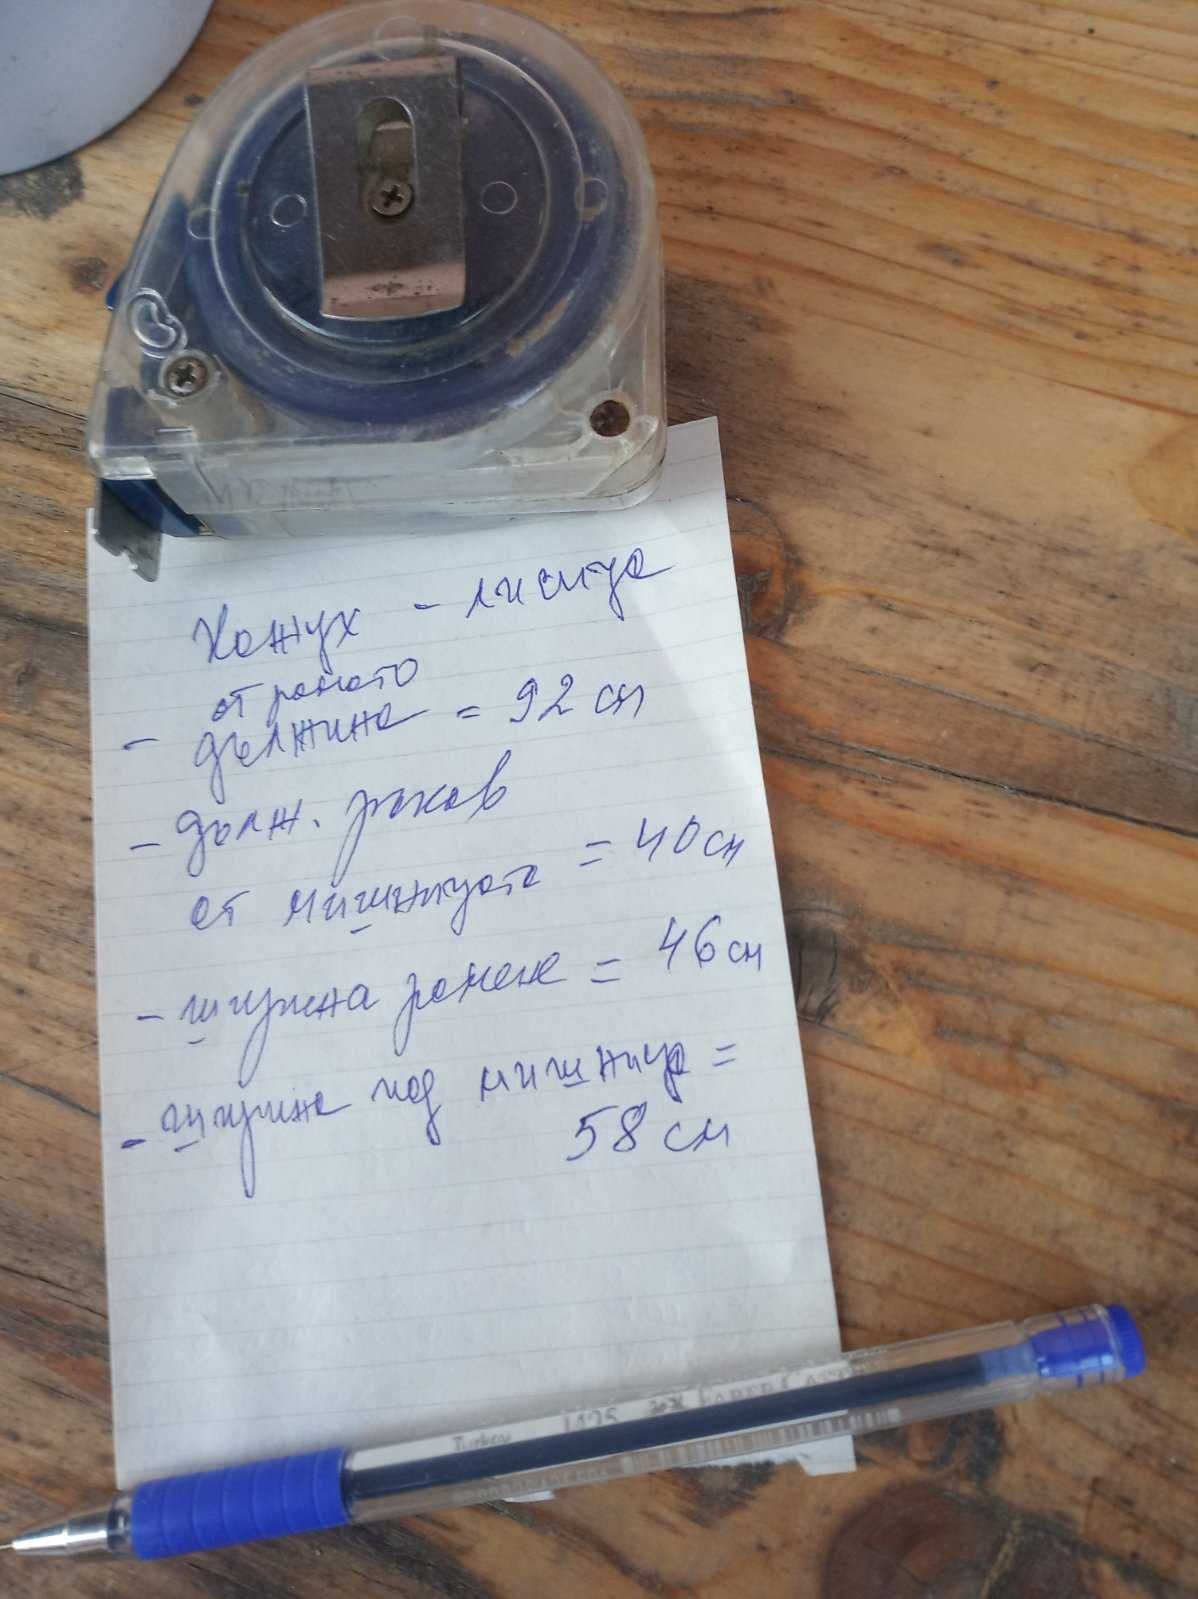 Кожух - лисица
от рамото
- дължина = 92 см
- дълж. ръкав
от мишницата = 40 см
- ширина рамене = 46 см
- ширина под мишница =
58 см
Turkey 1425 FABER-CASTELL